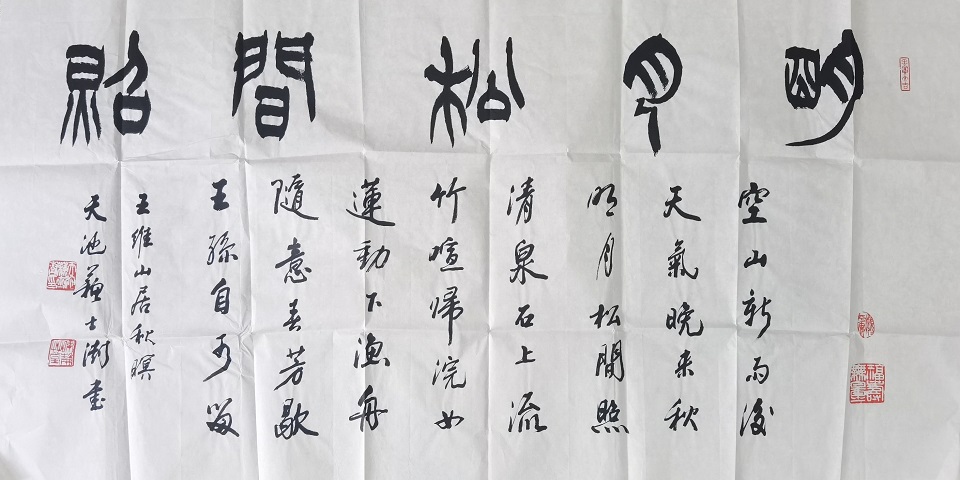 明月松間照
空山新雨後
天氣晚来秋
明月松間照
清泉石上流
竹喧帰浣女
蓮動下漁舟
隨意春芳歇
王孫自可留
王維山居秋暝
天池蘇士澍書